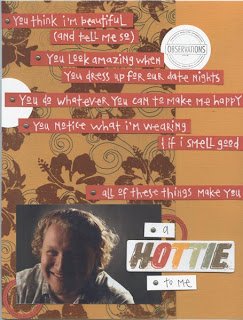 you think i'm beautiful
(and tell me so)
OBSERVATIONS
you look amazing when
you dress up for our date nights
you do whatever you can to make me happy
you notice what i'm wearing
& if i smell good
all of these things make you
a
HOTTIE
to me